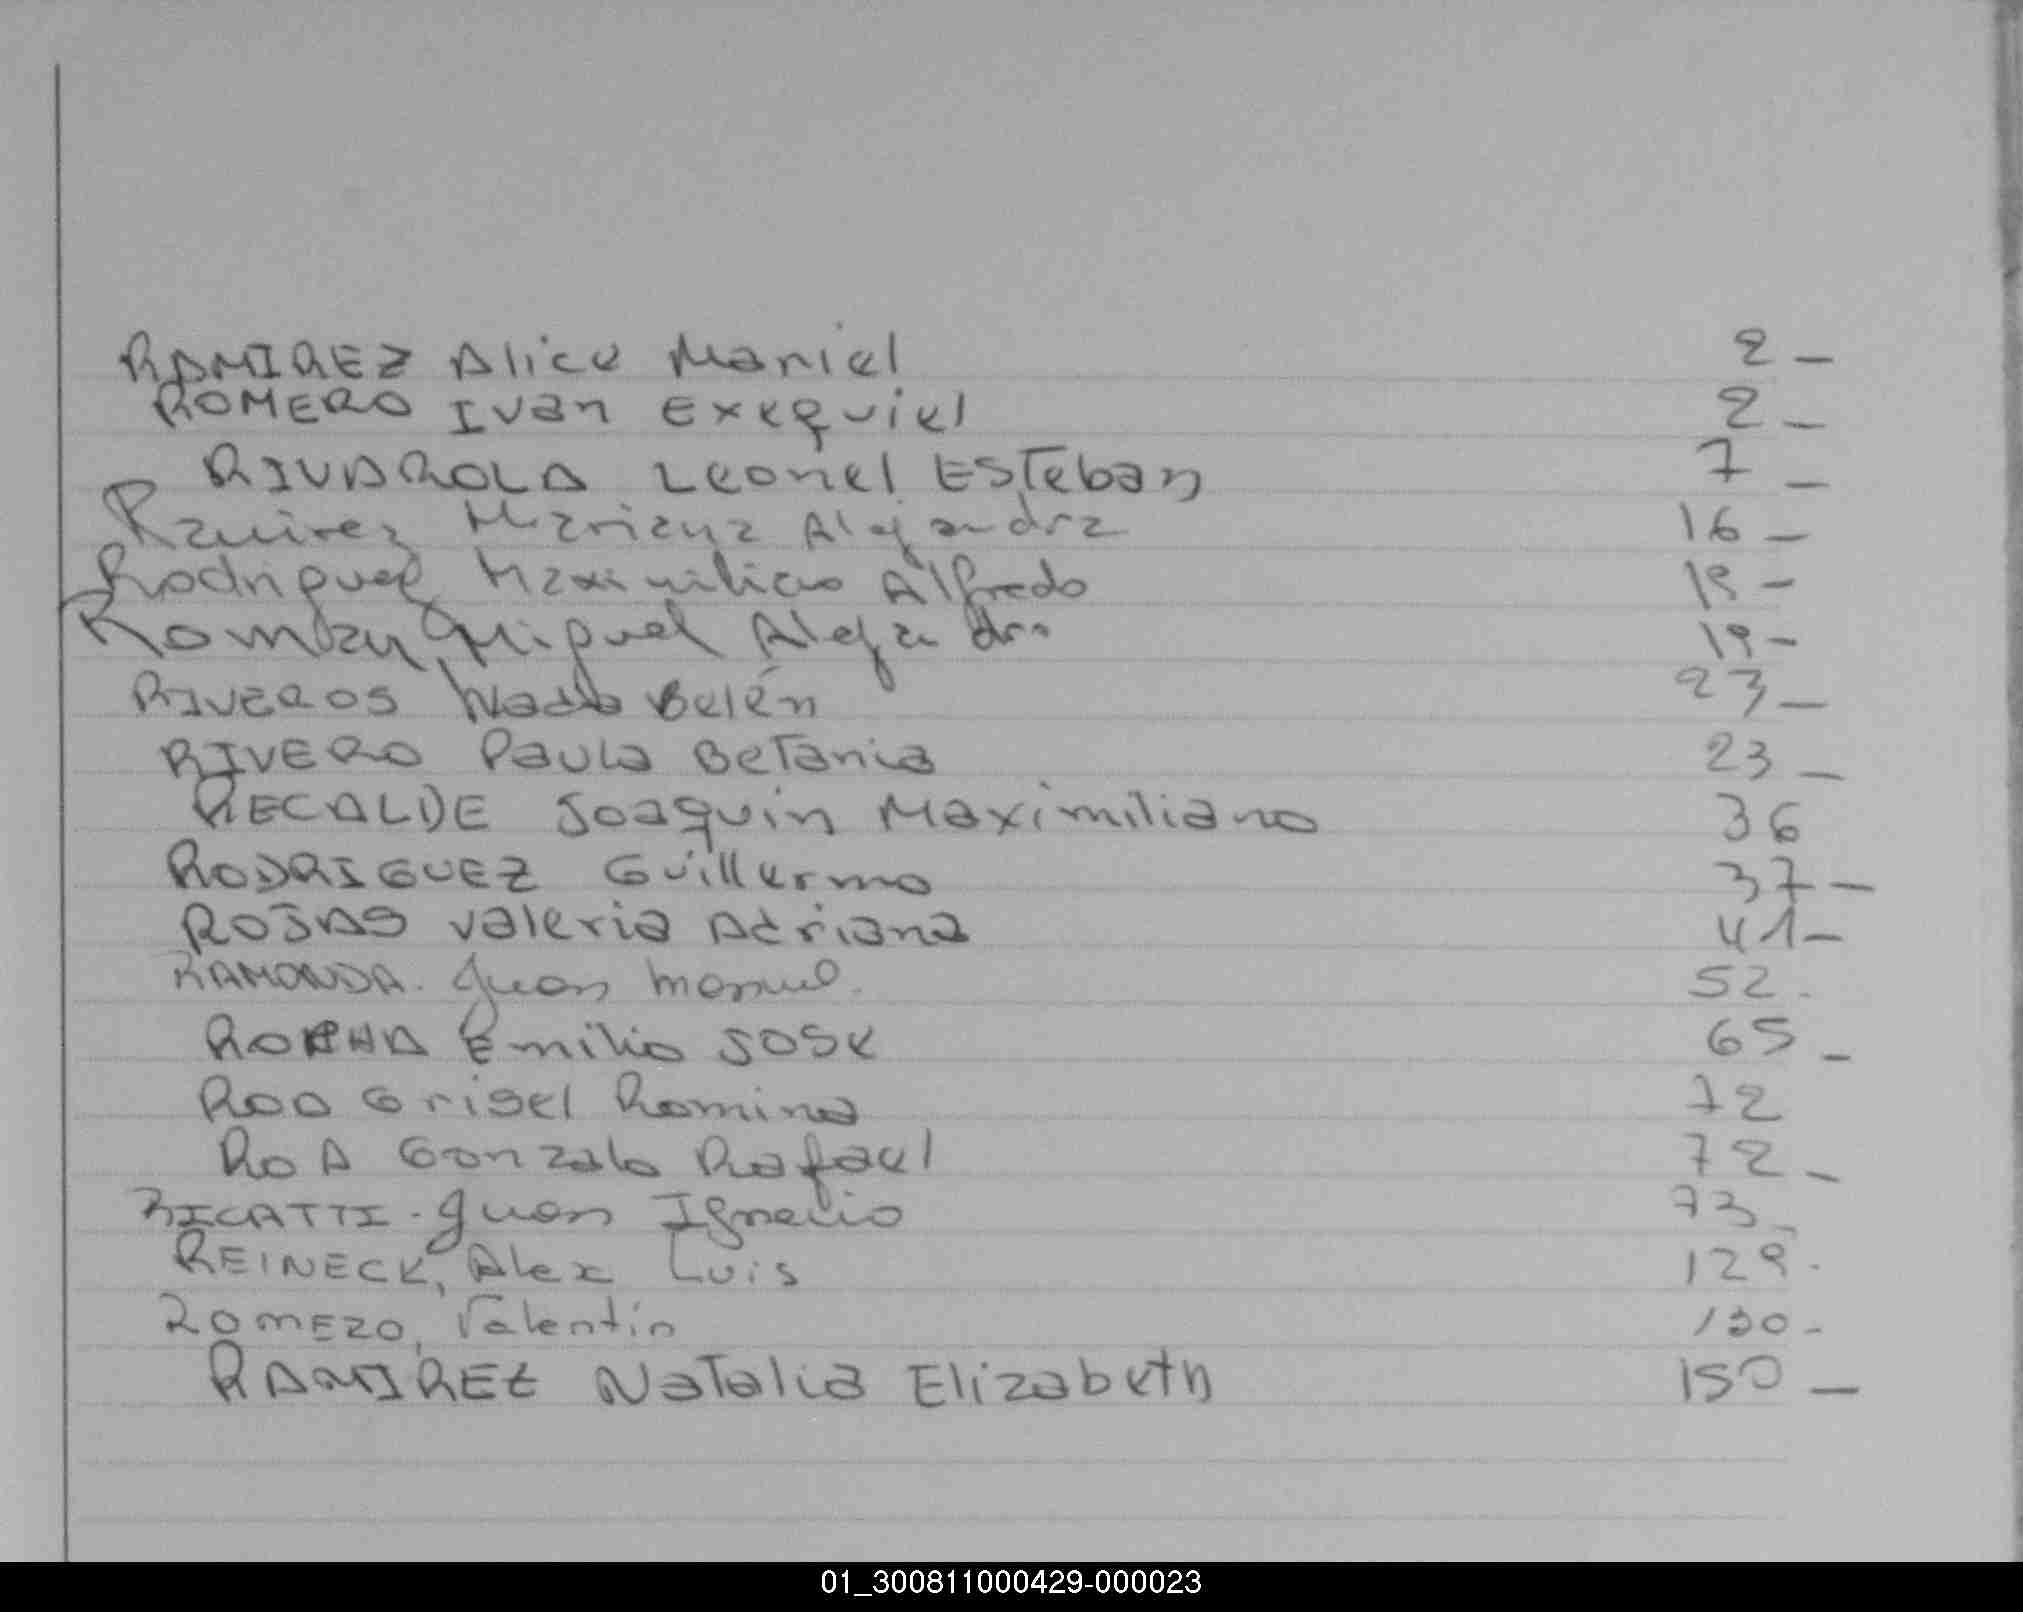 RAMIREZ Alice Mariel 2 _
ROMERO Ivan Exequiel 2 _
RIVAROLA Leonel Esteban 7 _
Ramirez Mariana Alejandra 16 _
Rodriguez Maximiliano Alfredo 18 -
Miguel Alejandro 19 -
RIVEROS Nadia Belén 23 _
RIVERO Paula Betania 23 _
RECALDE Joaquin Maximiliano 36
RODRIGUEZ Guillermo 37 -
ROJAS Valeria Adriana 41 -
RAMONDA. Juan Manuel. 52.
ROCHA Emilio Jose 65 _
ROA Grisel Romina 72
ROA Gonzalo Rafael 72 _
RICATTI. Juan Ignacio 73 _
REINECK, Alex Luis 129.
ROMERO, Valentín 130 -
RAMIREZ Natalia Elizabeth 150 _
01_300811000429-000023